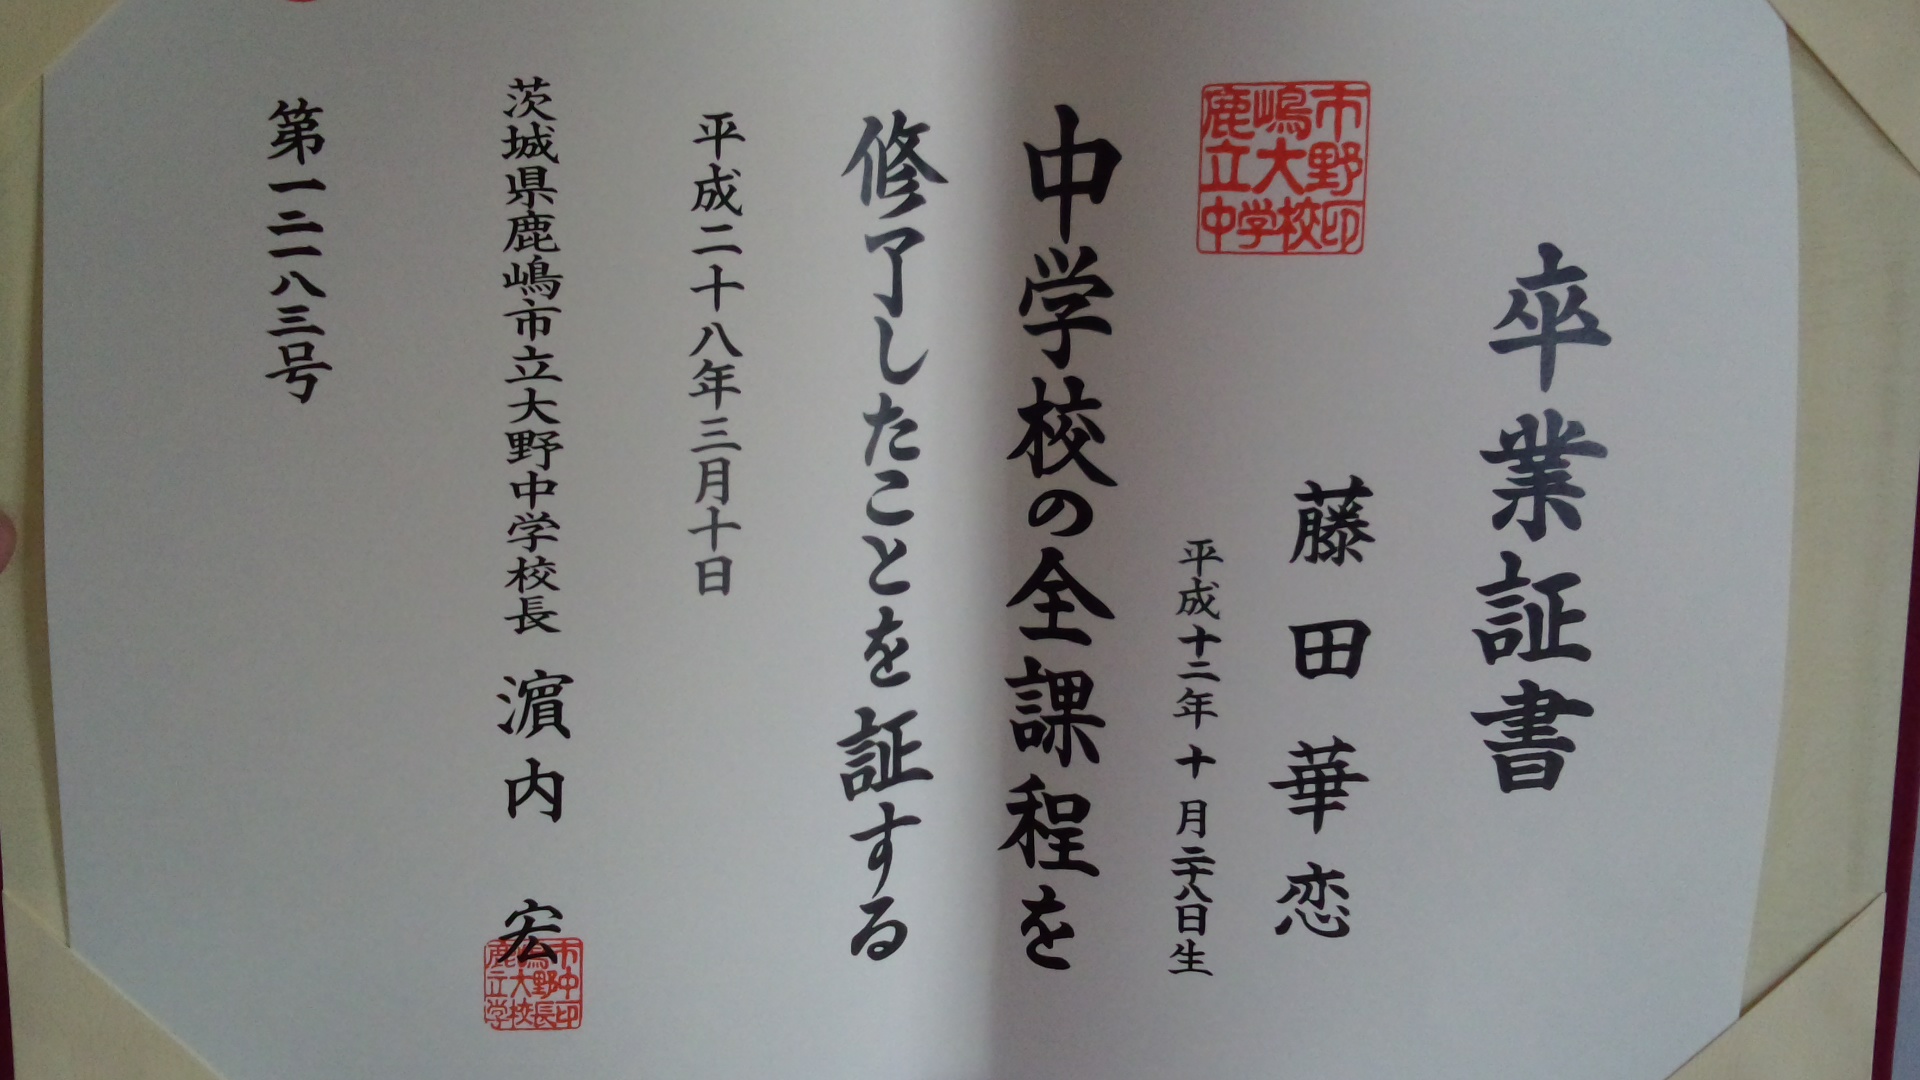 卒業証書
藤田華恋
平成十二年十月二十八日生
市野印
嶋大学校
鹿立中
中学校の全課程を
修了したことを証する
平成二十八年三月十日
茨城県鹿嶋市立大野中学校長 濵内 宏
市中印
嶋野長
大校
鹿立学
第一二一八三号